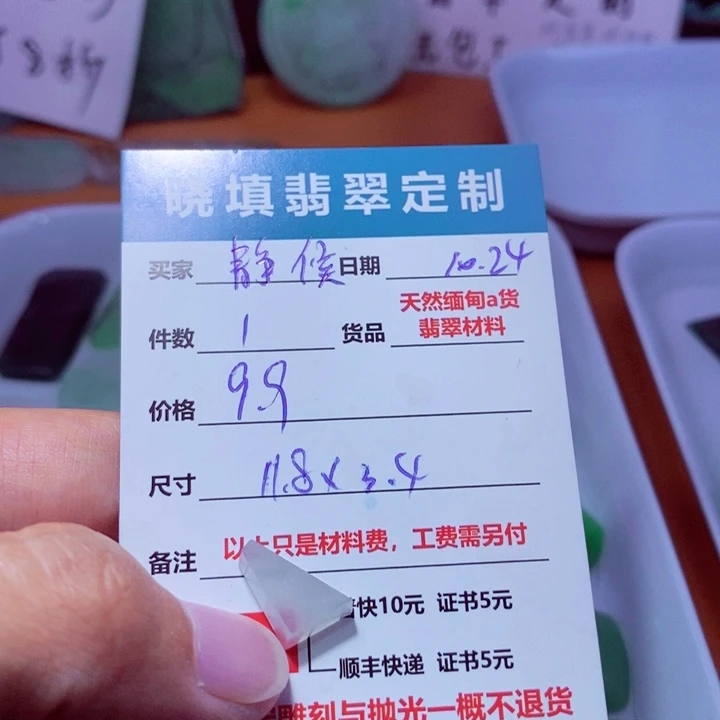 晓填翡翠定制
买家 静候 日期 10.24
件数 1 货品 天然缅甸a货
翡翠材料
价格 99
尺寸 11.8x3.4
备注 以上只是材料费，工费需另付
快10元 证书5元
顺丰快递 证书5元
雕刻与抛光一概不退货